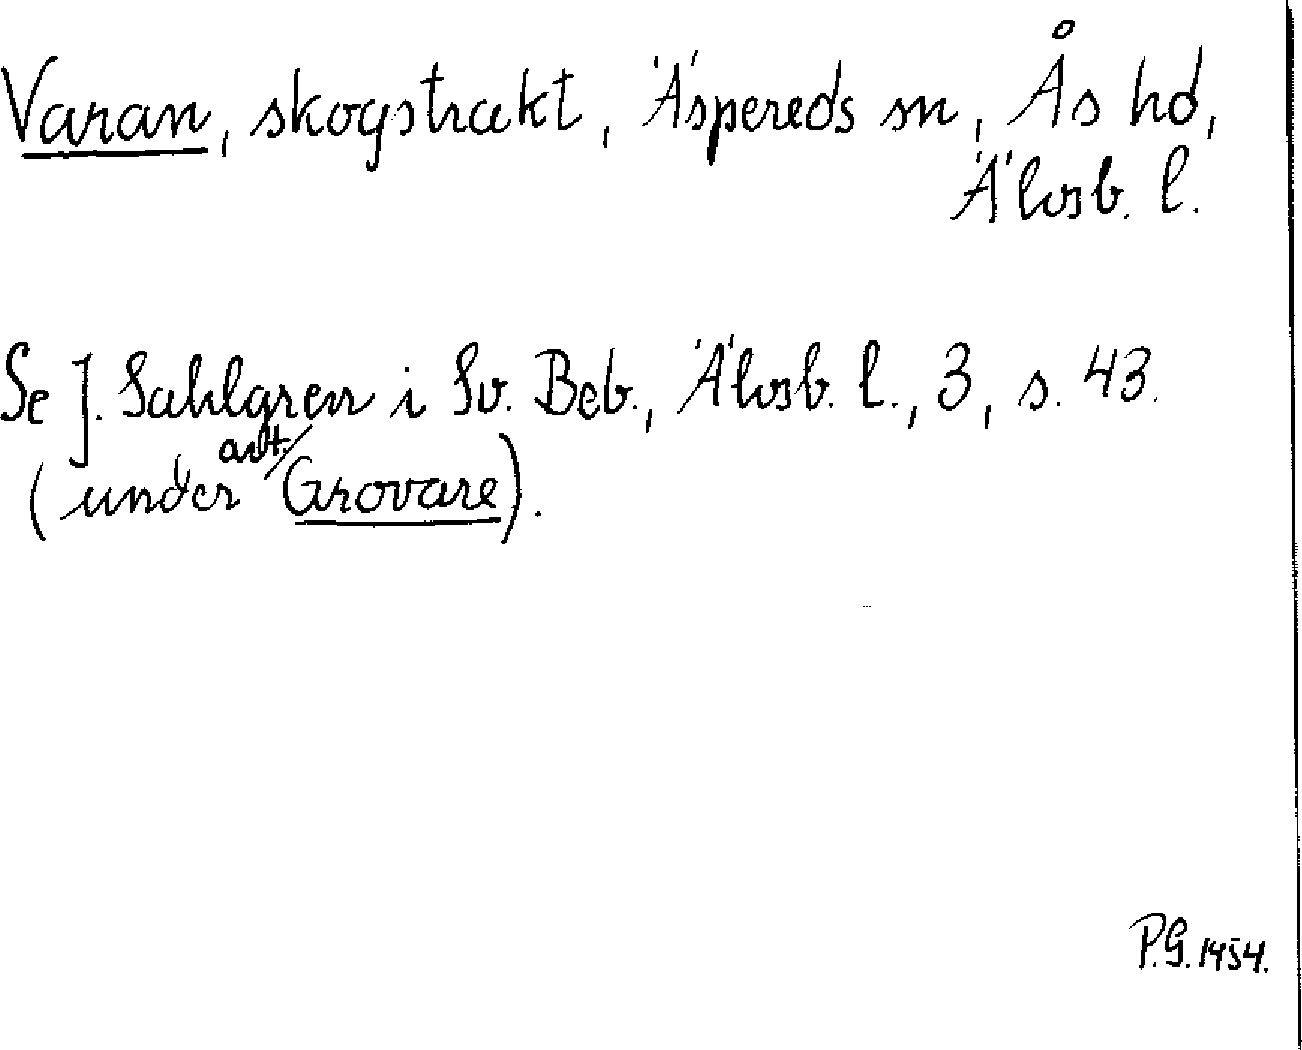 Varan, skogstrakt, Äspereds sn, Ås hd,
Älvsb. l.
Se J. Sahlgren i Sv. Beb., Älvsb. l., 3, s. 43.
(under art. Grovare).
P.G. 1954.